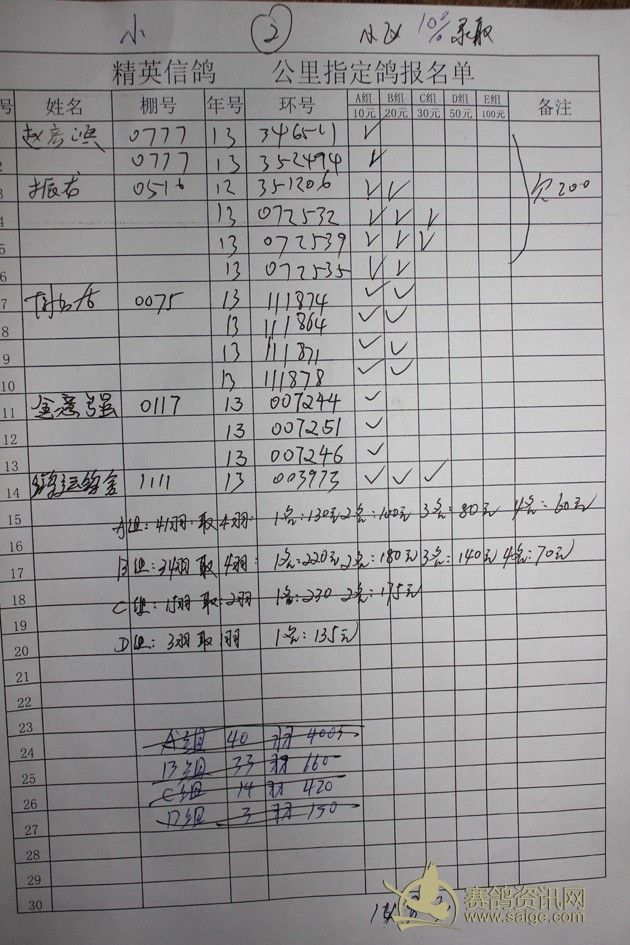 小 ②
10% 录取
精英信鸽 公里指定鸽报名单
号 姓名 棚号 年号 环号 A组 B组 C组 D组 E组 备注
10元 20元 30元 50元 100元
0777 13 ✓
2 0777 13 352494 ✓
3 振友 0516 12 351206 ✓ ✓ 欠200
4 13 072532 ✓ ✓ ✓
5 13 072539 ✓ ✓ ✓
6 13 072535 ✓ ✓
7 0075 13 111874 ✓ ✓
8 13 111864 ✓ ✓
9 13 111871 ✓ ✓
10 13 111878 ✓ ✓
11 0117 13 007244 ✓
12 13 007251 ✓
13 13 007246 ✓
14 1111 13 003973 ✓ ✓ ✓
15 A组:41羽 取4羽 1名:130元 2名:100元 3名:80元 4名:60元
16
17 B组:34羽 取4羽 1名:220元 2名:180元 3名:140元 4名:70元
18 C组:15羽 取2羽 1名:230 2名:175元
19
20 D组:3羽 取1羽 1名:135元
21
22
23
24 A组 40 羽 400
25 B组 33 羽 660
26 C组 14 羽 420
27 D组 3 羽 150
28
29
30
赛鸽资讯网
www.saige.com